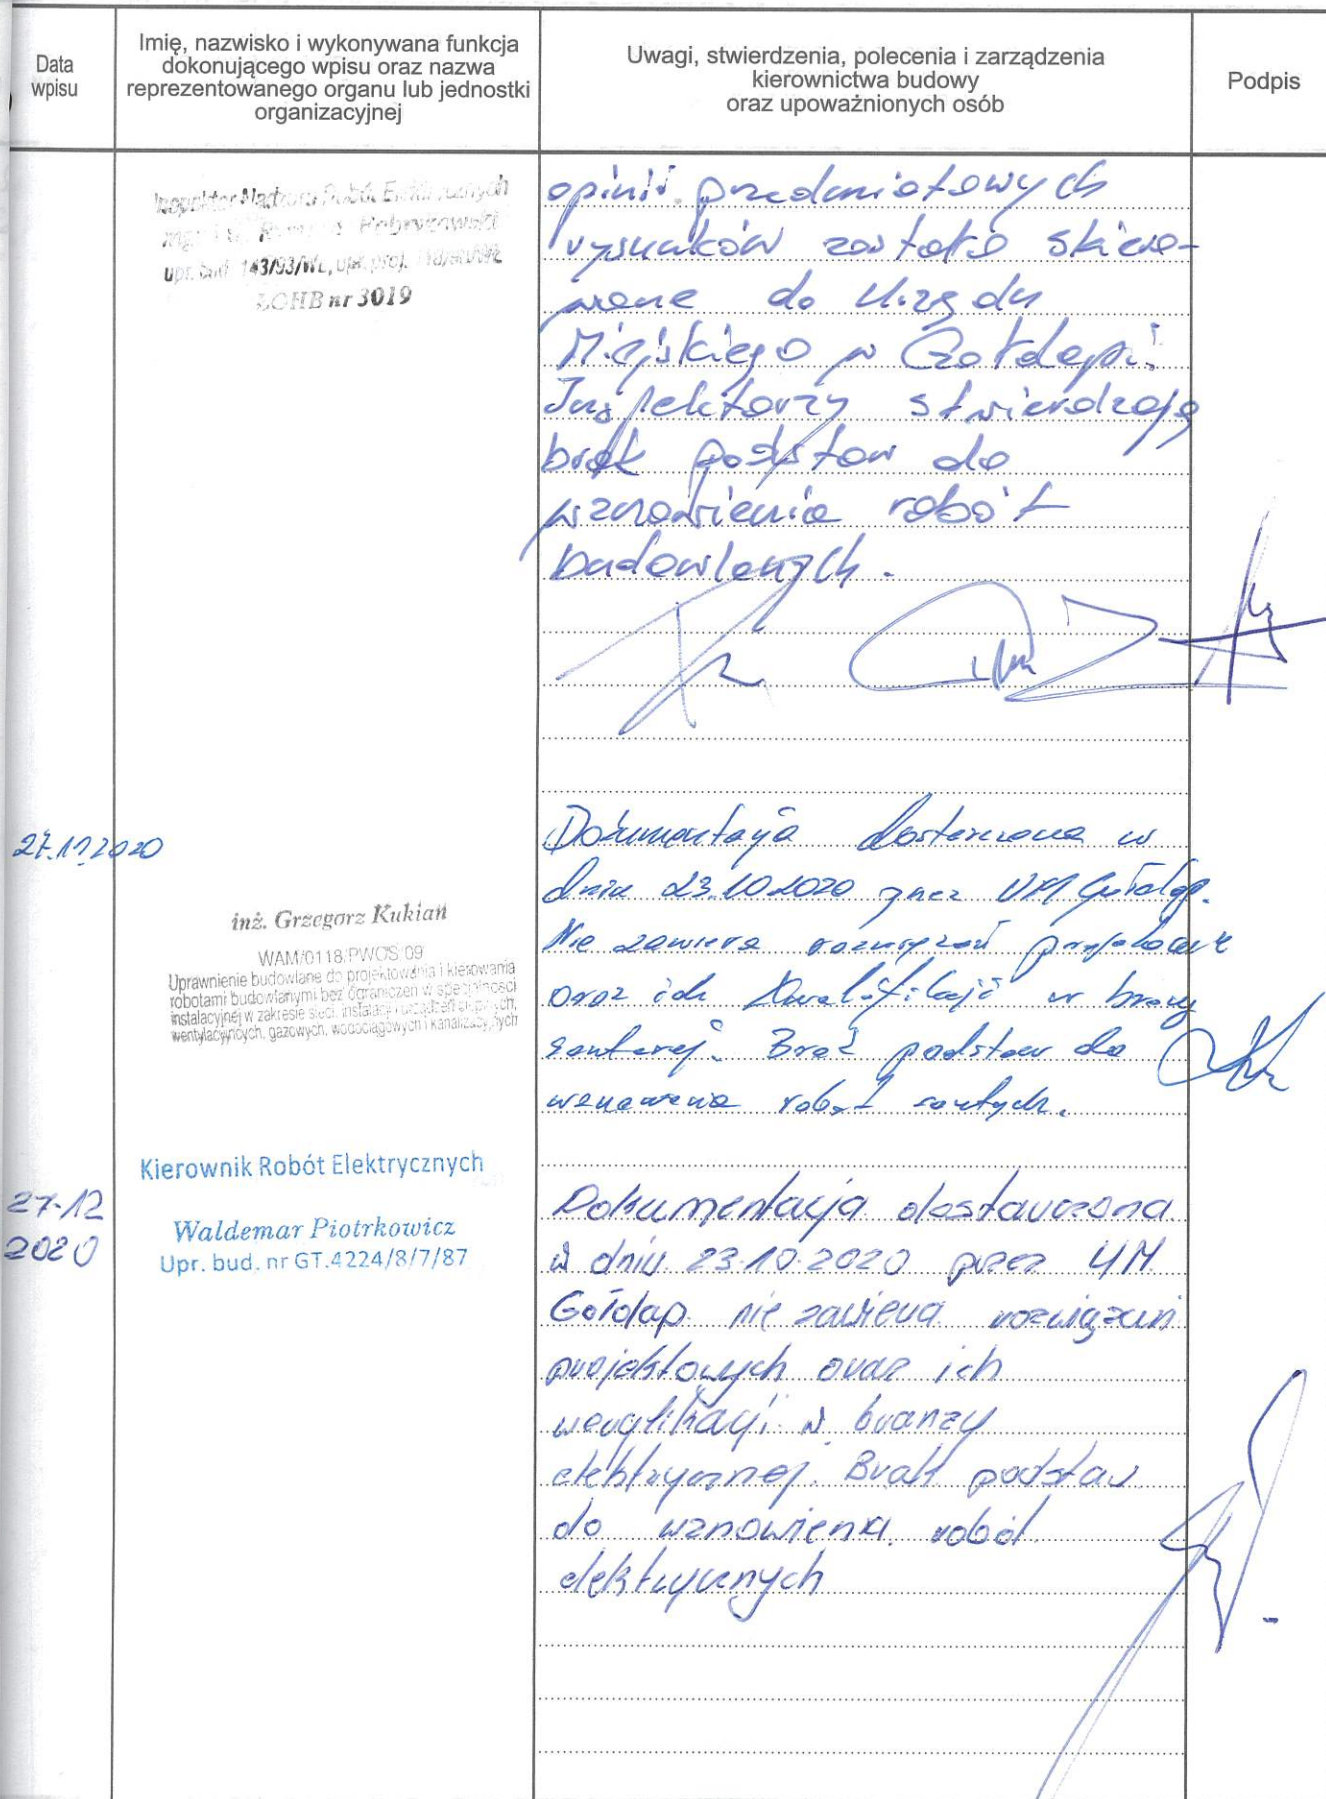 Data
wpisu
Imię, nazwisko i wykonywana funkcja
dokonującego wpisu oraz nazwa
reprezentowanego organu lub jednostki
organizacyjnej
Uwagi, stwierdzenia, polecenia i zarządzenia
kierownictwa budowy
oraz upoważnionych osób
Podpis
Inspektor Nadzoru Robót Elektrycznych
upr. bud. 143/93/WŁ, upr. proj.
nr 3019
opinii przedmiotowych
rysunków zostało skiero-
wane do Urzędu
Miejskiego w Gołdapi.
Inspektorzy stwierdzają
brak podstaw do
wznowienia robót
budowlanych.
inż. Grzegorz Kukian
WAM/0118/PWOS/09
Uprawnienie budowlane do projektowania i kierowania
robotami budowlanymi bez ograniczeń w specjalności
instalacyjnej w zakresie sieci, instalacji i urządzeń cieplnych,
wentylacyjnych, gazowych, wodociągowych i kanalizacyjnych
Dokumentacja dostarczona w
dniu 23.10.2020 przez UM Gołdap.
Nie zawiera rozwiązań projektowych
oraz ich w branży
sanitarnej. Brak podstaw do
wznowienia robót
27-12
2020
Kierownik Robót Elektrycznych
Waldemar Piotrkowicz
Upr. bud. nr GT.4224/8/7/87
Dokumentacja dostarczona
w dniu 23.10.2020 przez UM
Gołdap nie zawiera rozwiązań
projektowych oraz ich
weryfikacji w branży
elektrycznej. Brak podstaw
do wznowienia robót
elektrycznych